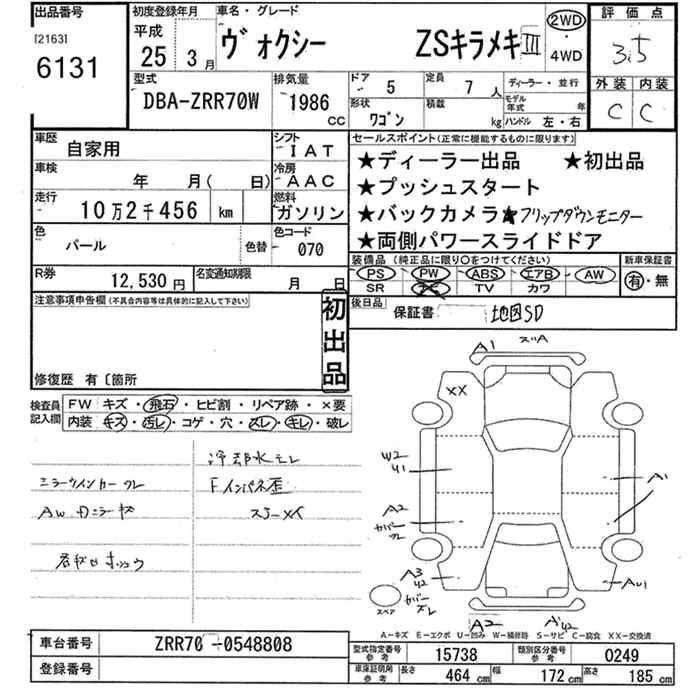 出品番号 初度登録年月 車名・グレード 評価点
[2163]
6131
平成
25 3月
ヴォクシー ZSキラメキIII
2WD
・
4WD
3.5
外装 内装
C C
型式 排気量 ドア 5 定員 7人 ディーラー・並行
DBA-ZRR70W 1986 CC
形状 ワゴン 積載 kg
モデル年式 年
ハンドル 左・右
車歴 自家用 シフト IAT
車検 年 月( 日) 冷房 AAC
走行 10万2千456 km 燃料 ガソリン
色 パール 色替 色コード 070
R券 12,530円 名変通知期限 月 日
セールスポイント(正常に機能するものに限ります)
★ディーラー出品 ★初出品
★プッシュスタート
★バックカメラ★フリップダウンモニター
★両側パワースライドドア
装備品(純正品に限り○をつけてください) 新車保証書
PS PW ABS エアB AW 有・無
SR ナビ TV カワ
後日品 保証書 地図SD
注意事項申告欄(不具合内容等は具体的に記入して下さい)
初出品
修復歴 有〔箇所
検査員記入欄
FW キズ・飛石・ヒビ割・リペア跡・×要
内装 キズ・汚レ・コゲ・穴・スレ・キレ・破レ
冷却水モレ
ミラーウインカーワレ Fインパネ歪
AW カニラーキズ スレーメイ
A1 スリA
XX
W2
U1
A1
A2
カバー
ワレ
A3
U2
カバー
ズレ
スペア
AU1
A2 A'U2
A-キズ E-エクボ U-凹み W-補修跡 S-サビ C-腐食 XX-交換済
車台番号 ZRR70-0548808
登録番号
型式指定番号 参考 15738 類別区分番号 参考 0249
車庫証明用 参考 長さ 464 cm 幅 172 cm 高さ 185 cm